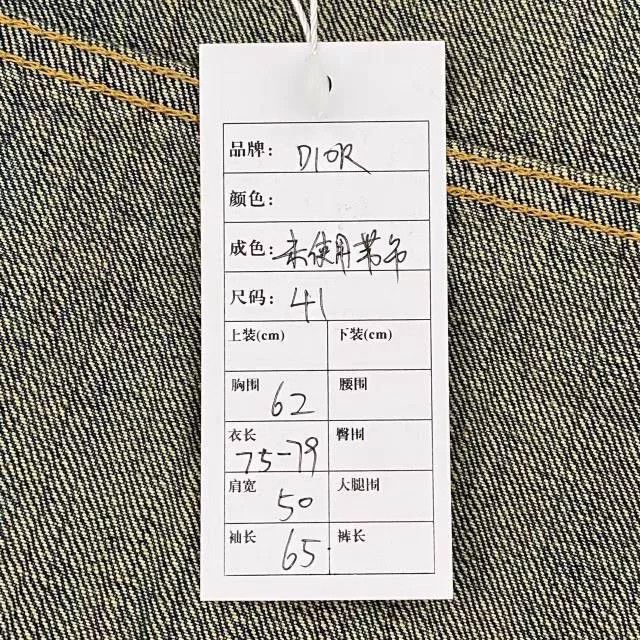 品牌: DIOR
颜色:
成色: 未使用带吊
尺码: 41
上装(cm) 下装(cm)
胸围 62 腰围
衣长 75-79 臀围
肩宽 50 大腿围
袖长 65 裤长